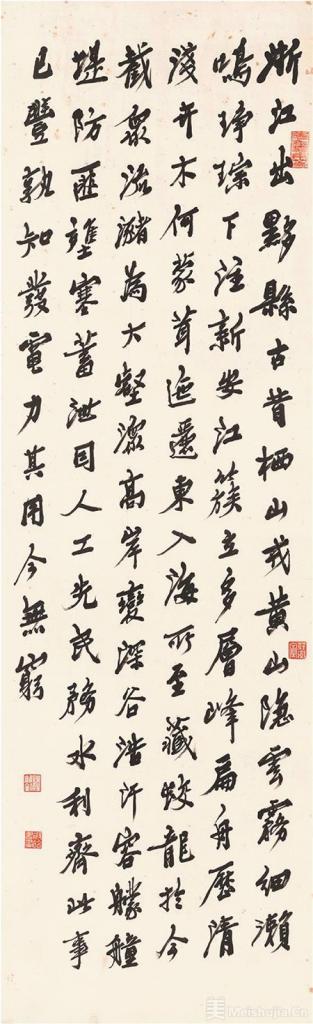 浙江出黟縣古昔栖山戎黃山隐雲霧細瀨
鳴琤琮下注新安江簇立多層峰扁舟歷清
淺卉木何蒙茸迤邐東入海所至藏蛟龍於今
截衆流瀦為大壑漾高岸變深谷浩汗容艨艟
堤防匪壅塞蓄泄因人工先民務水利齊此事
已豐孰知發電力其用今無窮
美 Meishujia.Cn